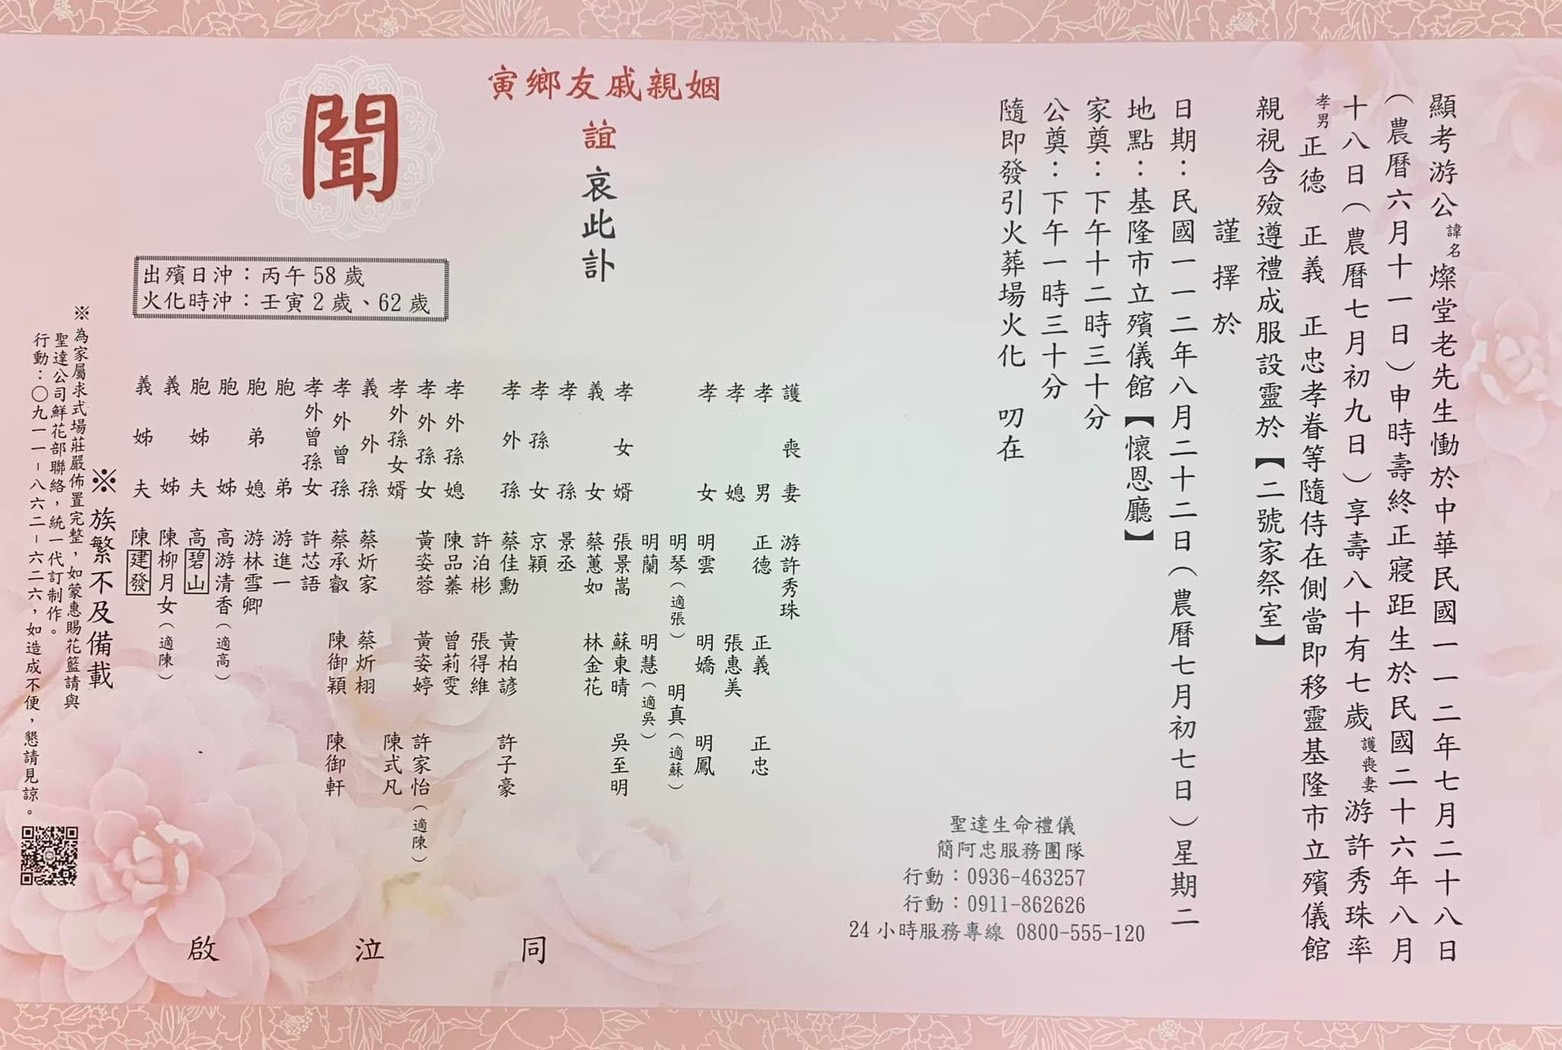 顯考游公諱名燦堂老先生慟於中華民國一一二年七月二十八日
（農曆六月十一日）申時壽終正寢距生於民國二十六年八月
十八日（農曆七月初九日）享壽八十有七歲護喪妻游許秀珠率
孝男正德　正義　正忠孝眷等隨侍在側當即移靈基隆市立殯儀館
親視含殮遵禮成服設靈於【二號家祭室】
謹擇於
日期：民國一一二年八月二十二日（農曆七月初七日）星期二
地點：基隆市立殯儀館【懷恩廳】
家奠：下午十二時三十分
公奠：下午一時三十分
隨即發引火葬場火化　叨在
聖達生命禮儀
簡阿忠服務團隊
行動：0936-463257
行動：0911-862626
24小時服務專線 0800-555-120
姻親戚友鄉寅
誼哀此訃
聞
護喪妻　游許秀珠
孝男　正德　正義　正忠
孝媳　張惠美
孝女　明雲　明嬌　明鳳
明琴（適張）　明真（適蘇）
明蘭　明慧（適吳）
孝女婿　張景嵩　蘇東晴　吳至明
義女　蔡蕙如　林金花
孝孫　景丞
孝孫女　京穎
孝外孫　蔡佳勳　黃柏諺　許子豪
許泊彬　張得維
孝外孫媳　陳品蓁　曾莉雯
孝外孫女　黃姿蓉　黃姿婷　許家怡（適陳）
孝外孫女婿　陳式凡
義外孫　蔡炘家　蔡炘栩
孝外曾孫　蔡承叡　陳御穎　陳御軒
孝外曾孫女　許芯語
胞弟　游進一
胞弟媳　游林雪卿
胞姊　高游清香（適高）
胞姊夫　高碧山
義姊　陳柳月女（適陳）
義姊夫　陳建發
同泣啟
出殯日沖：丙午58歲
火化時沖：壬寅2歲、62歲
※族繁不及備載
※為家屬求式場莊嚴佈置完整，如蒙惠賜花籃請與
聖達公司鮮花部聯絡，統一代訂制作。
行動：〇九一一－八六二－六二六，如造成不便，懇請見諒。